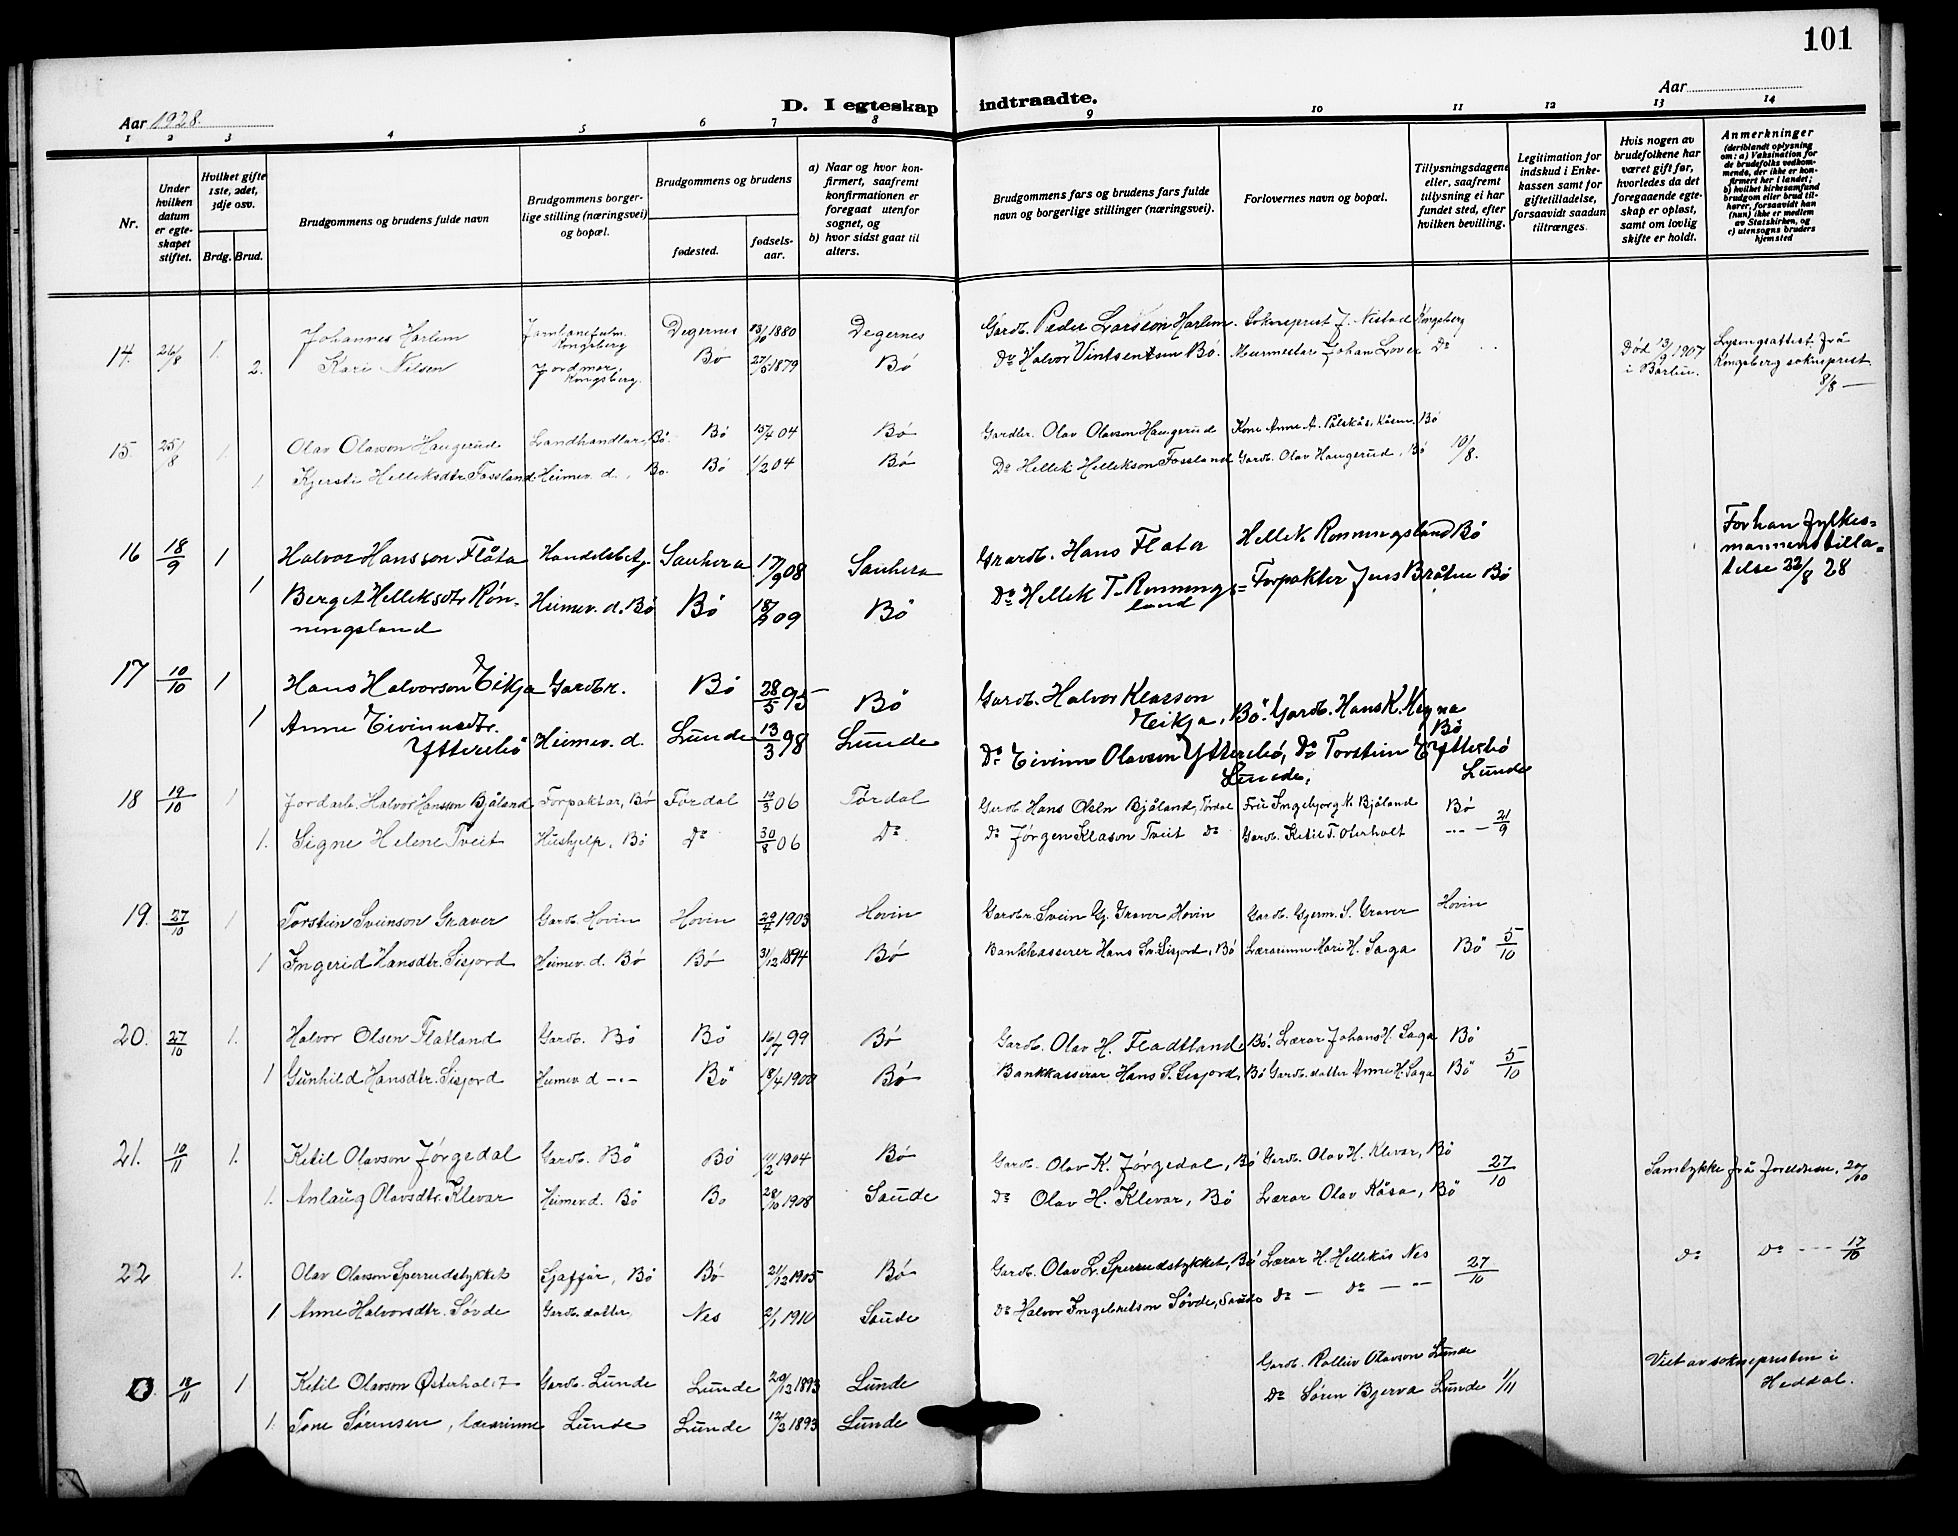 101
Aar 1928.
D. I egteskap indtraadte.
Aar
1 2 3 4 5 6 7 8 9 10 11 12 13 14
Nr.
Under hvilken datum er egteskapet stiftet.
Hvilket gifte 1ste, 2det, 3dje osv.
Brdg. Brud.
Brudgommens og brudens fulde navn
Brudgommens borgerlige stilling (næringsvei) og bopæl.
Brudgommens og brudens
fødested.
fødselsaar.
a) Naar og hvor konfirmert, saafremt konfirmationen er foregaat utenfor sognet, og
b) hvor sidst gaat til alters.
Brudgommens fars og brudens fars fulde navn og borgerlige stillinger (næringsvei).
Forlovernes navn og bopæl.
Tillysningsdagene eller, saafremt tillysning ei har fundet sted, efter hvilken bevilling.
Legitimation for indskud i Enkekassen samt for giftetilladelse, forsaavidt saadan tiltrænges.
Hvis nogen av brudefolkene har været gift før, hvorledes da det foregaaende egteskap er opløst, samt om lovlig skifte er holdt.
Anmerkninger (deriblandt oplysning om: a) Vaksination for de brudefolks vedkommende, der ikke er konfirmert her i landet; b) hvilket kirkesamfund brudgom eller brud tilhører, forsaavidt han (hun) ikke er medlem av Statskirken, og c) utensogns bruders hjemsted
14. 26/8 1. Johannes Harlem Kongsberg Degernes 13/10 1880 Degernes Gardb. Peder Larsson Harlem. Sokneprest J. Nestad Kongsberg
2. Kari Nilsen Kongsberg. Bø 27/5 1879 Bø Do Halvor Vintsentsen Bø. Murmestar Johan Lover Do
Død 13/9 1907 i Berlin.
Lysingsattest frå Kongsberg sokneprest 8/8
15. 25/8 1. Olav Olavson Haugerud Landhandlar, Bø. Bø 15/4 04 Bø Gardbr. Olav Olavson Haugerud Kone Anne A. Bø
1. Kjersti Helleksdtr. Fossland Heimev. d., Bø. Bø 1/2 04 Bø Do Hellek Hellekson Fossland Gardb. Olav Haugerud, Bø 10/8.
16 18/9 1 Halvor Hansson Flåta Handelsbetj. Sauhera 17/9 08 Sauhera Grardb. Hans Flata Hellek Ronningsland Bø
1 Berget Helleksdtr Rønningsland Heimev. d. Bø Bø 18/9 09 Bø Do Hellek T. Ronningsland Forpakter Jens Bråten Bø
Forhan fylkesmannens tillatelse 22/8 28
17 10/10 1 Hans Halvorson Eikja Gardbr. Bø 28/5 95 Bø Gardb. Halvor Klasson Eikja, Bø. Gardb. Hans K. Hegna Bø
1 Anne Eivinnsdtr. Ytterebø Heimev. d. Lunde 13/3 98 Lunde Do Eivinn Olavson Ytterebø, Lunde, Do Torstein E Ytterbø Lunde
18 19/10 1 Jordarb. Halvor Hanssen Bjåland Forpaktar, Bø Tørdal 19/3 06 Tørdal Gardb Hans Olsen Bjåland, Tørdal Frú Ingebjorg K. Bjåland Bø
1. Signe Helene Tveit Hushjelp, Bø Do 30/8 06 Do Do Jørgen Klasson Tveit Do Gardb. Ketil T. Oterholt 21/9
19. 27/10 1 Torstein Sveinson Graver Gardb. Hovin Hovin 29/4 1903 Hovin Gardbr. Svein Gj. Graver Hovin Gardb. Gjerm. S. Graver Hovin
1 Ingerid Hansdtr. Sisjord Heimev. d. Bø Bø 31/12 1894 Bø Bankkasserer Hans Sv. Sisjord, Bø Lærarinne Mari H. Saga Bø 5/10
20. 27/10 1. Halvor Olsen Flatland Gardb. Bø Bø 16/7 99 Bø Gardb. Olav H. Fladtland Bø. Lærar Johans H. Saga Bø
1 Gunhild Hansdtr. Sisjord Heimev. d Bø 18/4 1900 Bø Bankkasserar Hans S. Sisjord, Bø Gardb. datter Anne H. Saga Bø 5/10
21. 10/11 1. Ketil Olavson Jørgedal Gardb. Bø Bø 1904 Bø Gardb. Olav K. Jørgedal, Bø Gardb. Olav H. Klevar, Bø 27/10
1. Anlaug Olavsdtr. Klevar Heimev. d. Bø Bø 28/10 1908 Saude Do Olav H. Klevar, Bø Lærar Olav Kåsa, Bø
Samtykke frå foreldrene, 20/10
22 1. Olav Olavson Sperrudstykket Sjåffør, Bø Bø 21/12 1905 Bø Gardb. Olav L. Sperrudstykket, Bø Lærar H. Hellekås Nes 27/10
1 Anne Halvorsdtr. Søvde Gardb. datter, Nes 2/1 1910 Saude Do Halvor Ingebretson Søvde, Saude Do Do
Do Do 17/10
18/11 1 Ketil Olavson Østerholt Gardb. Lunde Lunde 20/12 1893 Lunde Gardb. Rolleiv Olavson Lunde
1. Tone Sørensen, lærarinne Lunde Lunde 12/2 1893 Lunde Do Søren Bjerva Lunde 1/11
Viet av soknepresten i Heddal.